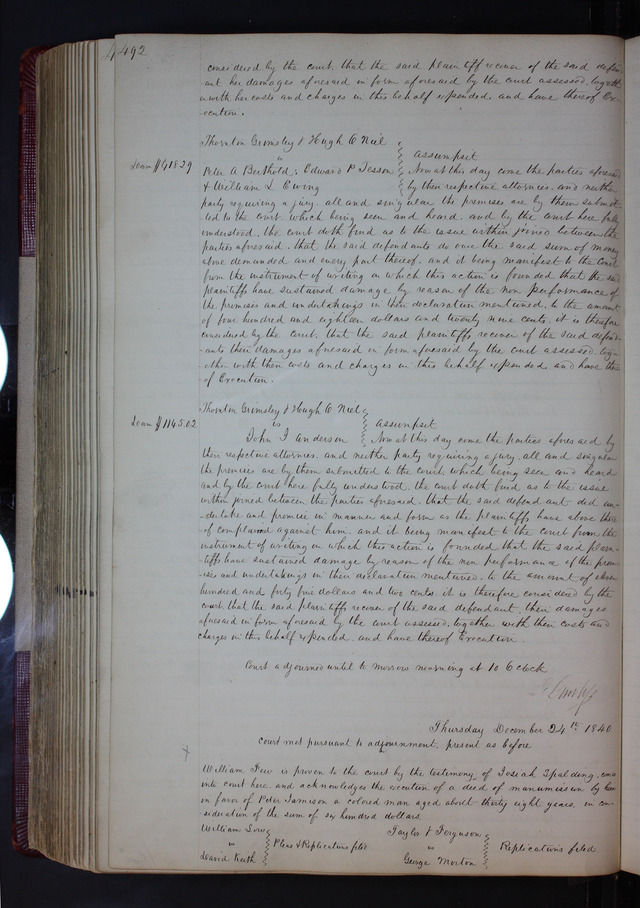 492
considered by the court, that the said plaintiff recover of the said defend-
ant her damages aforesaid in form aforesaid by the court assessed, togeth
er with her costs and charges in this behalf expended, and have thereof Ex-
ecution.
Thornton Grimsley & Hugh O Niel
vs
Assumpsit
Dam $418.29
Peter A Berthold, Edward P Tesson
& William L Ewing
Now at this day come the parties aforesaid
by their respective attornies, and neither
party requiring a jury, all and singular the premises are by them submit-
ted to the court which being seen and heard, and by the court here fully
understood, the court doth find as to the issue within joined between the
parties aforesaid, that the said defendants do owe the said sum of money
above demanded and every part thereof, and it being manifest to the court
from the instrument of writing on which this action is founded that the said
plaintiffs have sustained damage by reason of the non performance of
the promises and undertakings in their declaration mentioned, to the amount
of four hundred and eighteen dollars and twenty nine cents, it is therefore
considered by the court, that the said plaintiffs recover of the said defend-
-ants their damages aforesaid in form aforesaid by the court assessed, tog-
-ether with their costs and charges in this behalf expended and have there
of Execution.
Thornton Grimsley & Hugh O Niel
vs
Assumpsit
Dam $1145.02
John J Anderson
Now at this day come the parties aforesaid by
their respective attornies, and neither party requiring a jury, all and singular
the premises are by them submitted to the court, which being seen and heard
and by the court here fully understood, the court doth find as to the issue
within joined between the parties aforesaid, that the said defendant did un-
-dertake and promise in manner and form as the plaintiffs have above there
of complained against him, and it being manifest to the court from the
instrument of writing on which this action is founded that the said plain-
-tiffs have sustained damage by reason of the non performance of the prom-
-ises and undertakings in their declaration mentioned, to the amount of eleven
hundred and forty five dollars and two cents, it is therefore considered by the
court, that the said plaintiffs recover of the said defendant, their damages
aforesaid in form aforesaid by the court assessed, together with their costs and
charges in this behalf expended, and have thereof Execution.
Court adjourned until to morrow morning at 10 O'clock
Thursday December 24th 1840
Court met pursuant to adjournment, present as before
x
William Few is proven to the court by the testimony of Josiah Spalding, comes
into court here, and acknowledges the execution of a deed of manumission by him
in favor of Peter Jamison a colored man aged about thirty eight years, in con-
sideration of the sum of six hundred dollars.
William Low
vs
David Keith
Pleas & Replications filed
Taylor & Ferguson
vs
George Morton
Replications filed